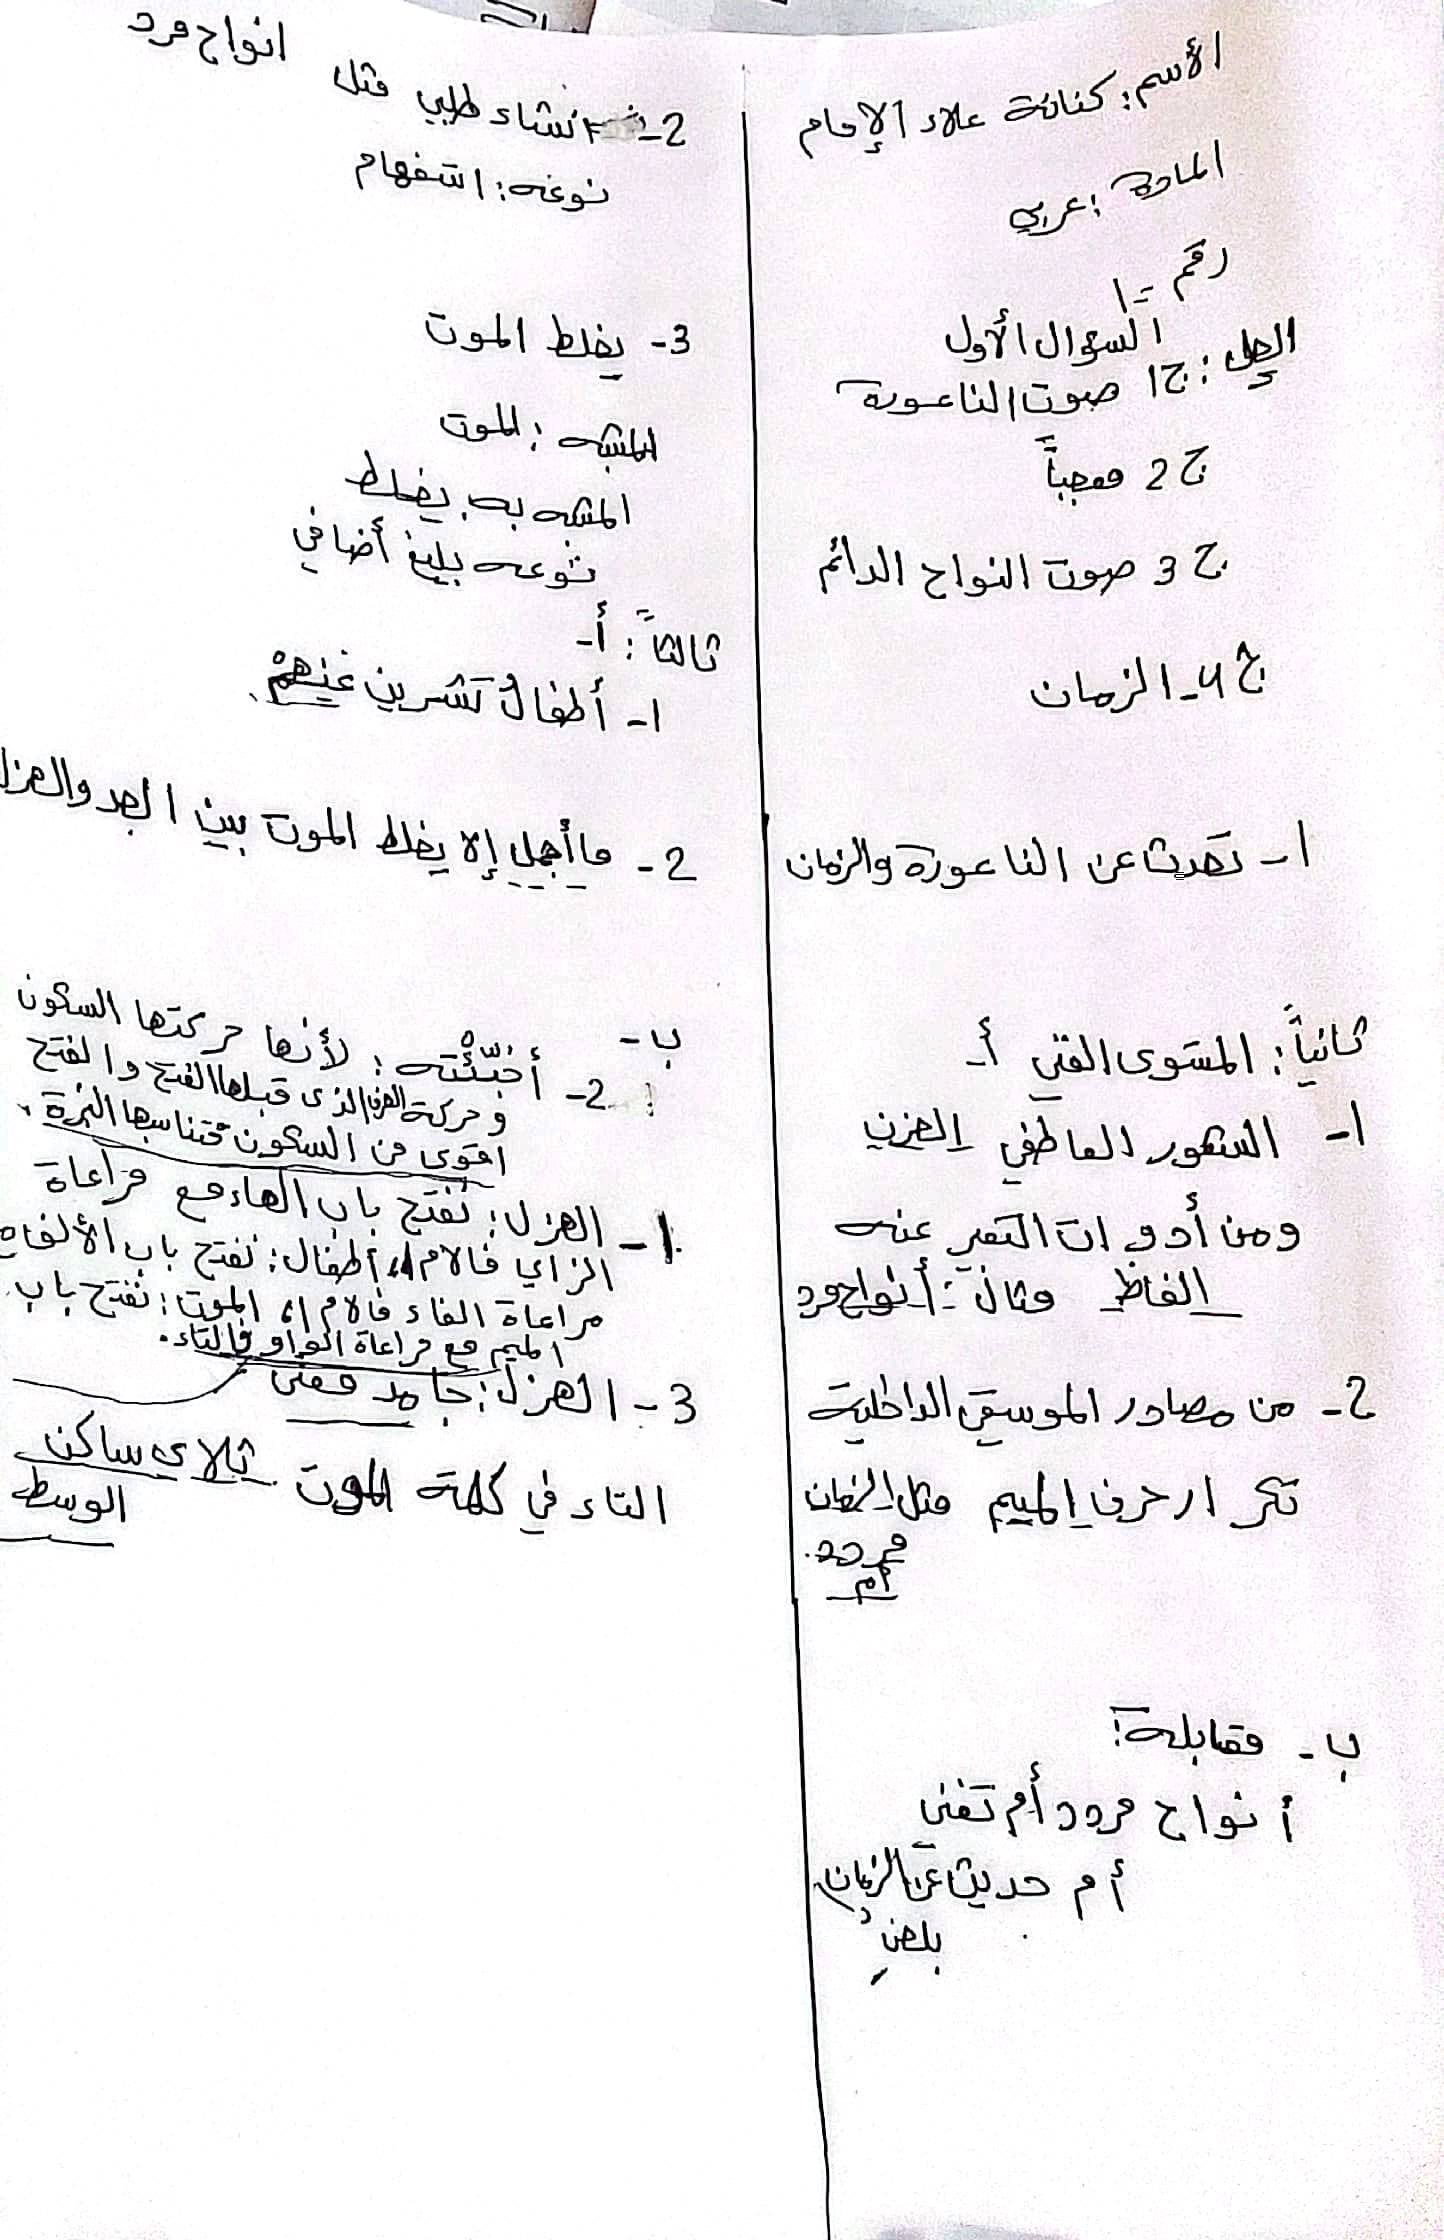 الأسم: كنانة علاء الإمام
المادة: عربي
رقم -1
السؤال الأول
الحل: ج1 صوت الناعورة
ج2 معجباً
ج3 صوت النواح الدائم
ج4- الزمان
1- تحدث عن الناعورة والزمان
ثانياً: المستوى الفني أ-
1- الشعور العاطفي الحزن
ومن أدوات التعبير عنه
الفاظ مثال: أنواح مرد
2- من مصادر الموسيقى الداخلية
تكرار حرف الميم مثل الزمان
مردد.
أم
ب- مقابلة:
أنواح مردد أم تغنى
أم حديث عن الزمان
بلحن
انواح مرد
2- انشاء طلبي مثل
نوعه: استفهام
3- يخلط الموت
المشبه: الموت
المشبه به: يخلط
نوعه بليغ أضافي
ثالثاً: أ-
1- أطفال تشرين عنهم.
2- ما أجمل إلا يخلط الموت بين الجد والهزل
ب-
2- أخبّئته: لأنها حركتها السكون
وحركة الحرف الذي قبلها الفتح والفتح
اقوى من السكون فتناسبها النبرة.
1- الهزل: نفتح باب الهاء مع مراعاة
الزاي فالام،، أطفال: نفتح باب الألف مع
مراعاة الفاء فالام،، الموت: نفتح باب
الميم مع مراعاة الواو فالتاء.
3- الهزل: جامد معنى
التاء في كلمة الموت ثلاثي ساكن
الوسط